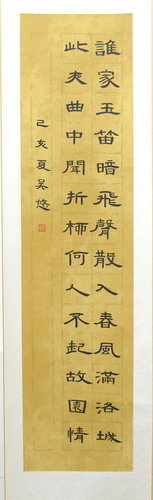 誰家玉笛暗飛聲散入春風滿洛城
此夾曲中聞折柳何人不起故園情
己亥夏吴悠